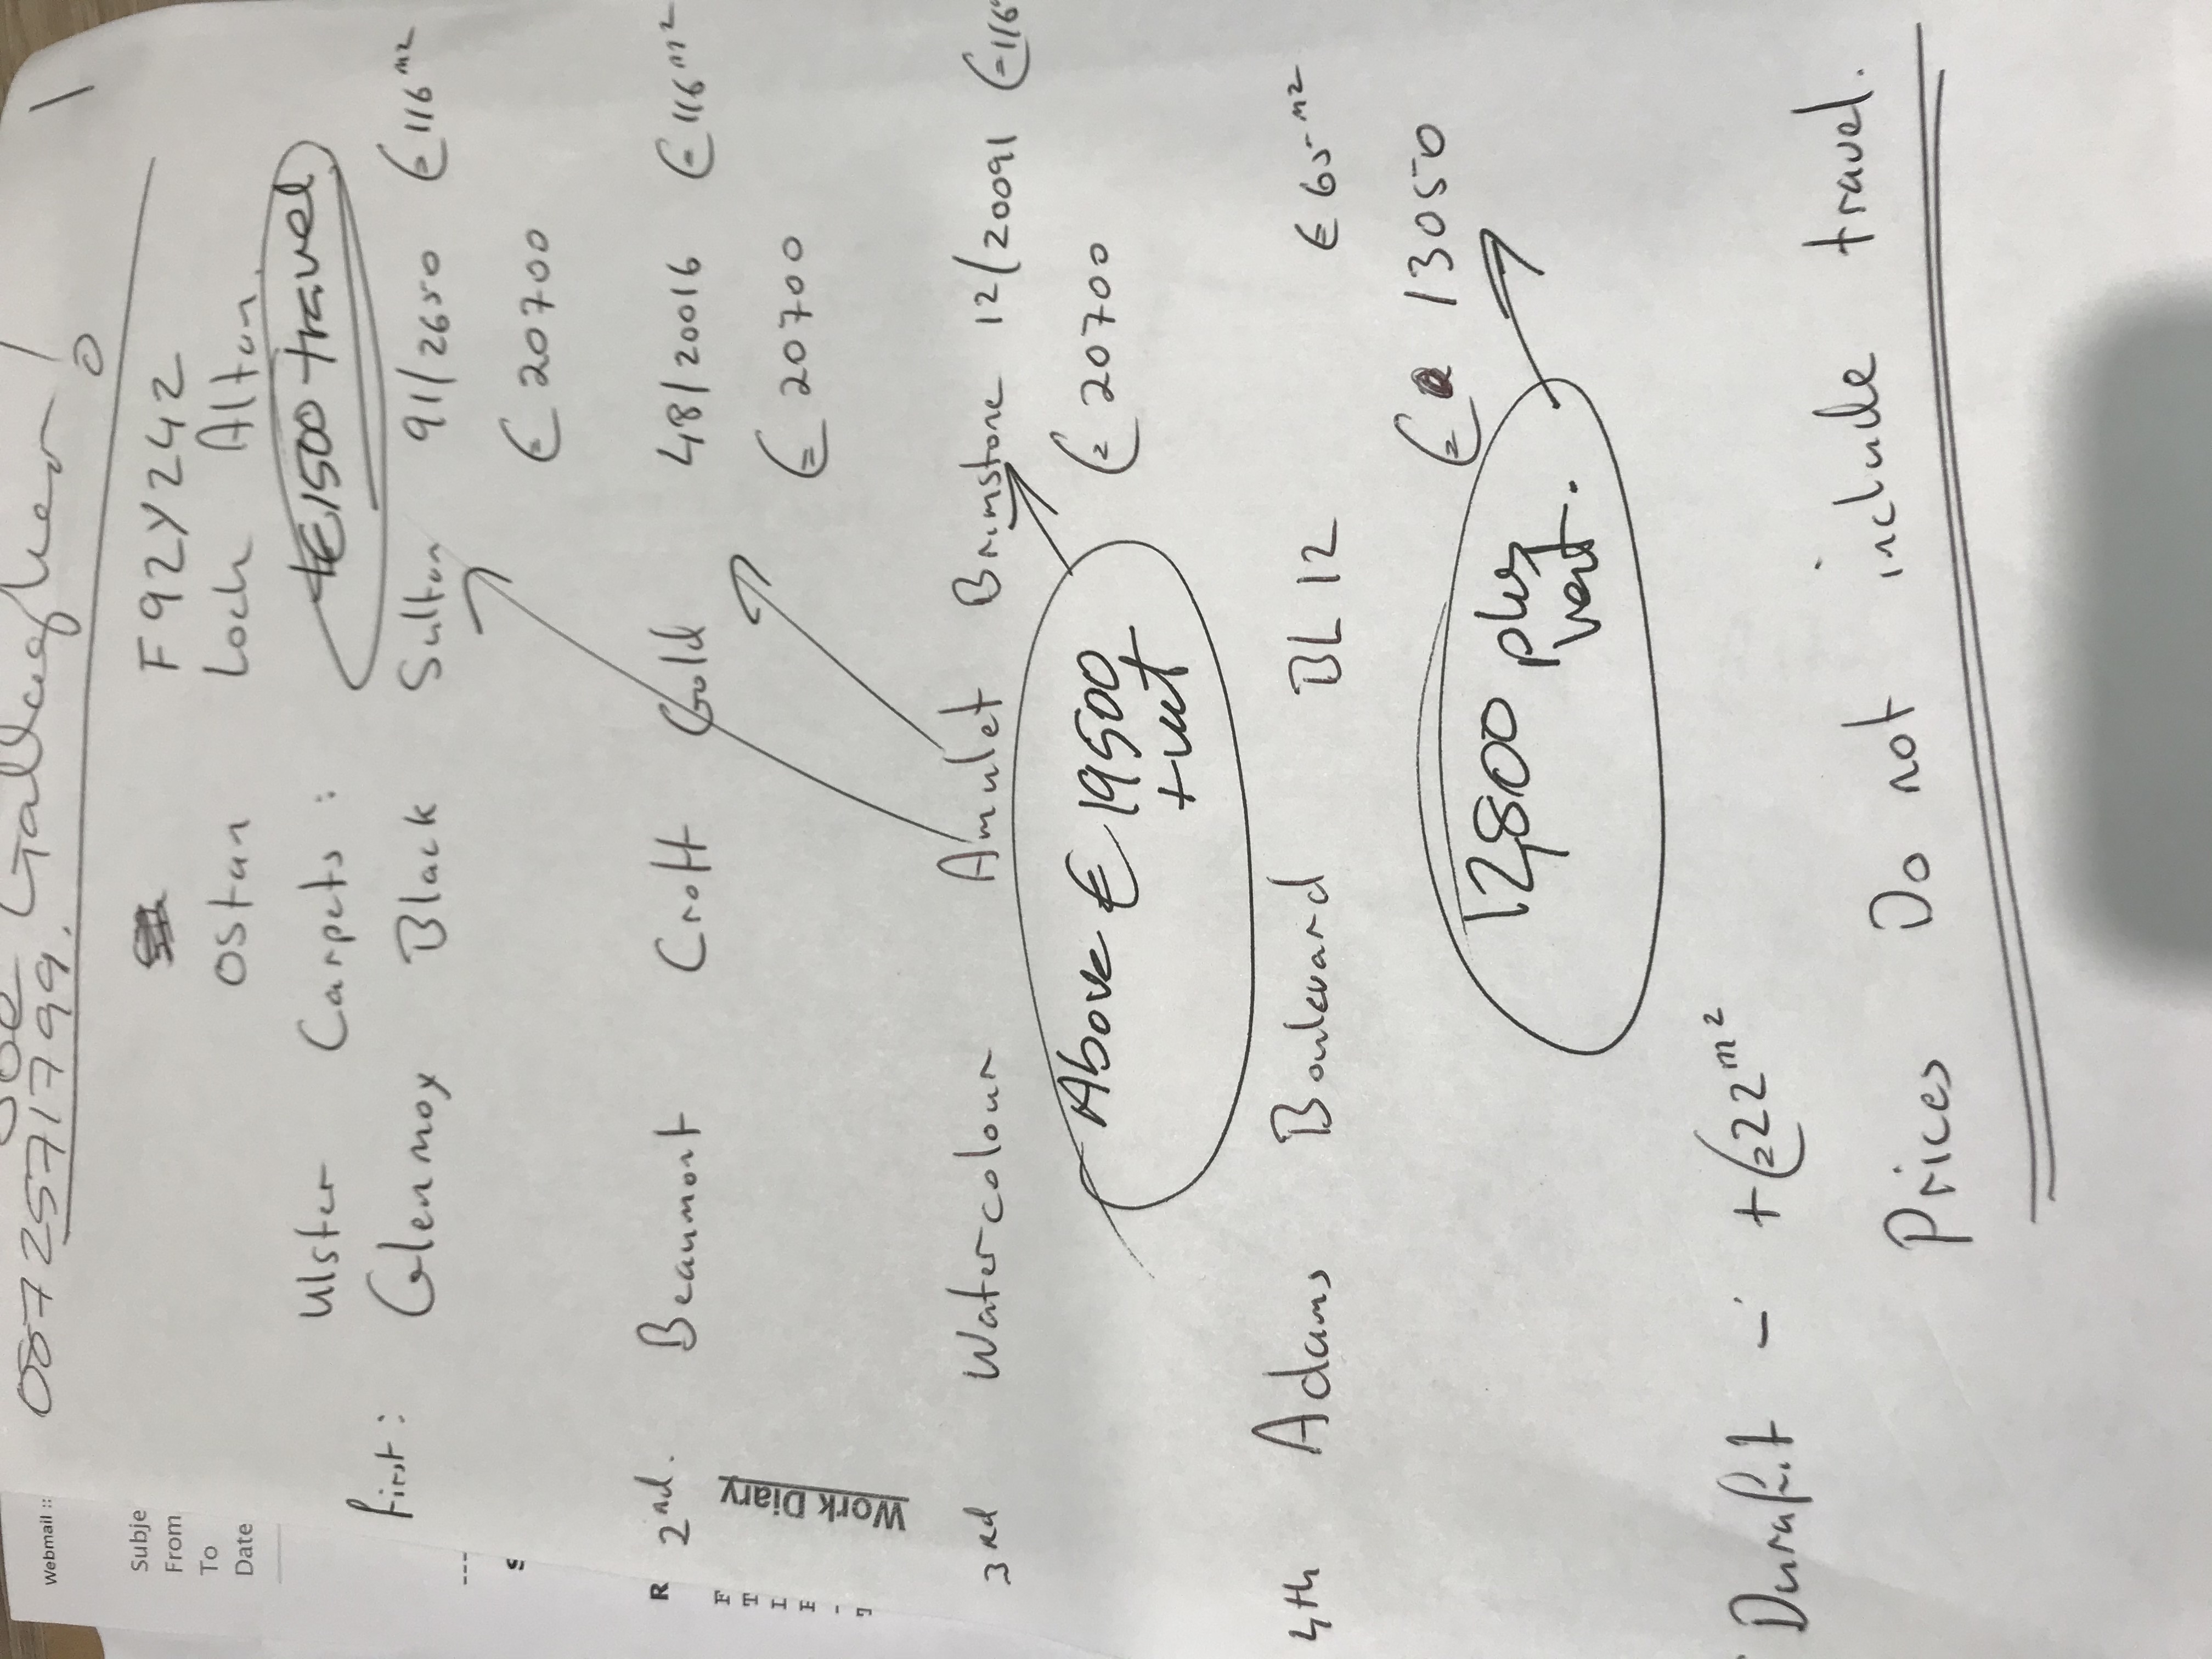 Gallaugher
0872571799.
F92Y242
Ostan Loch Altan
Ulster Carpets:
+€1500 travel
First: Glenmoy Black Sultan 91/2650 €116 m2
€20700
2nd. Beaumont Croft Gold 48/20016 €116 m2
€20700
3rd Watercolour Amulet Brimstone 12/20091 €116
€20700
Above €19500
+ vat
4th Adams Boulevard BL12 €65 m2
€ 13050
12800 plus
vat.
Durafit - +€22 m2
Prices Do not include travel.
webmail ::
Subje
From
To
Date
---
S
R
F
T
L
Work Diary